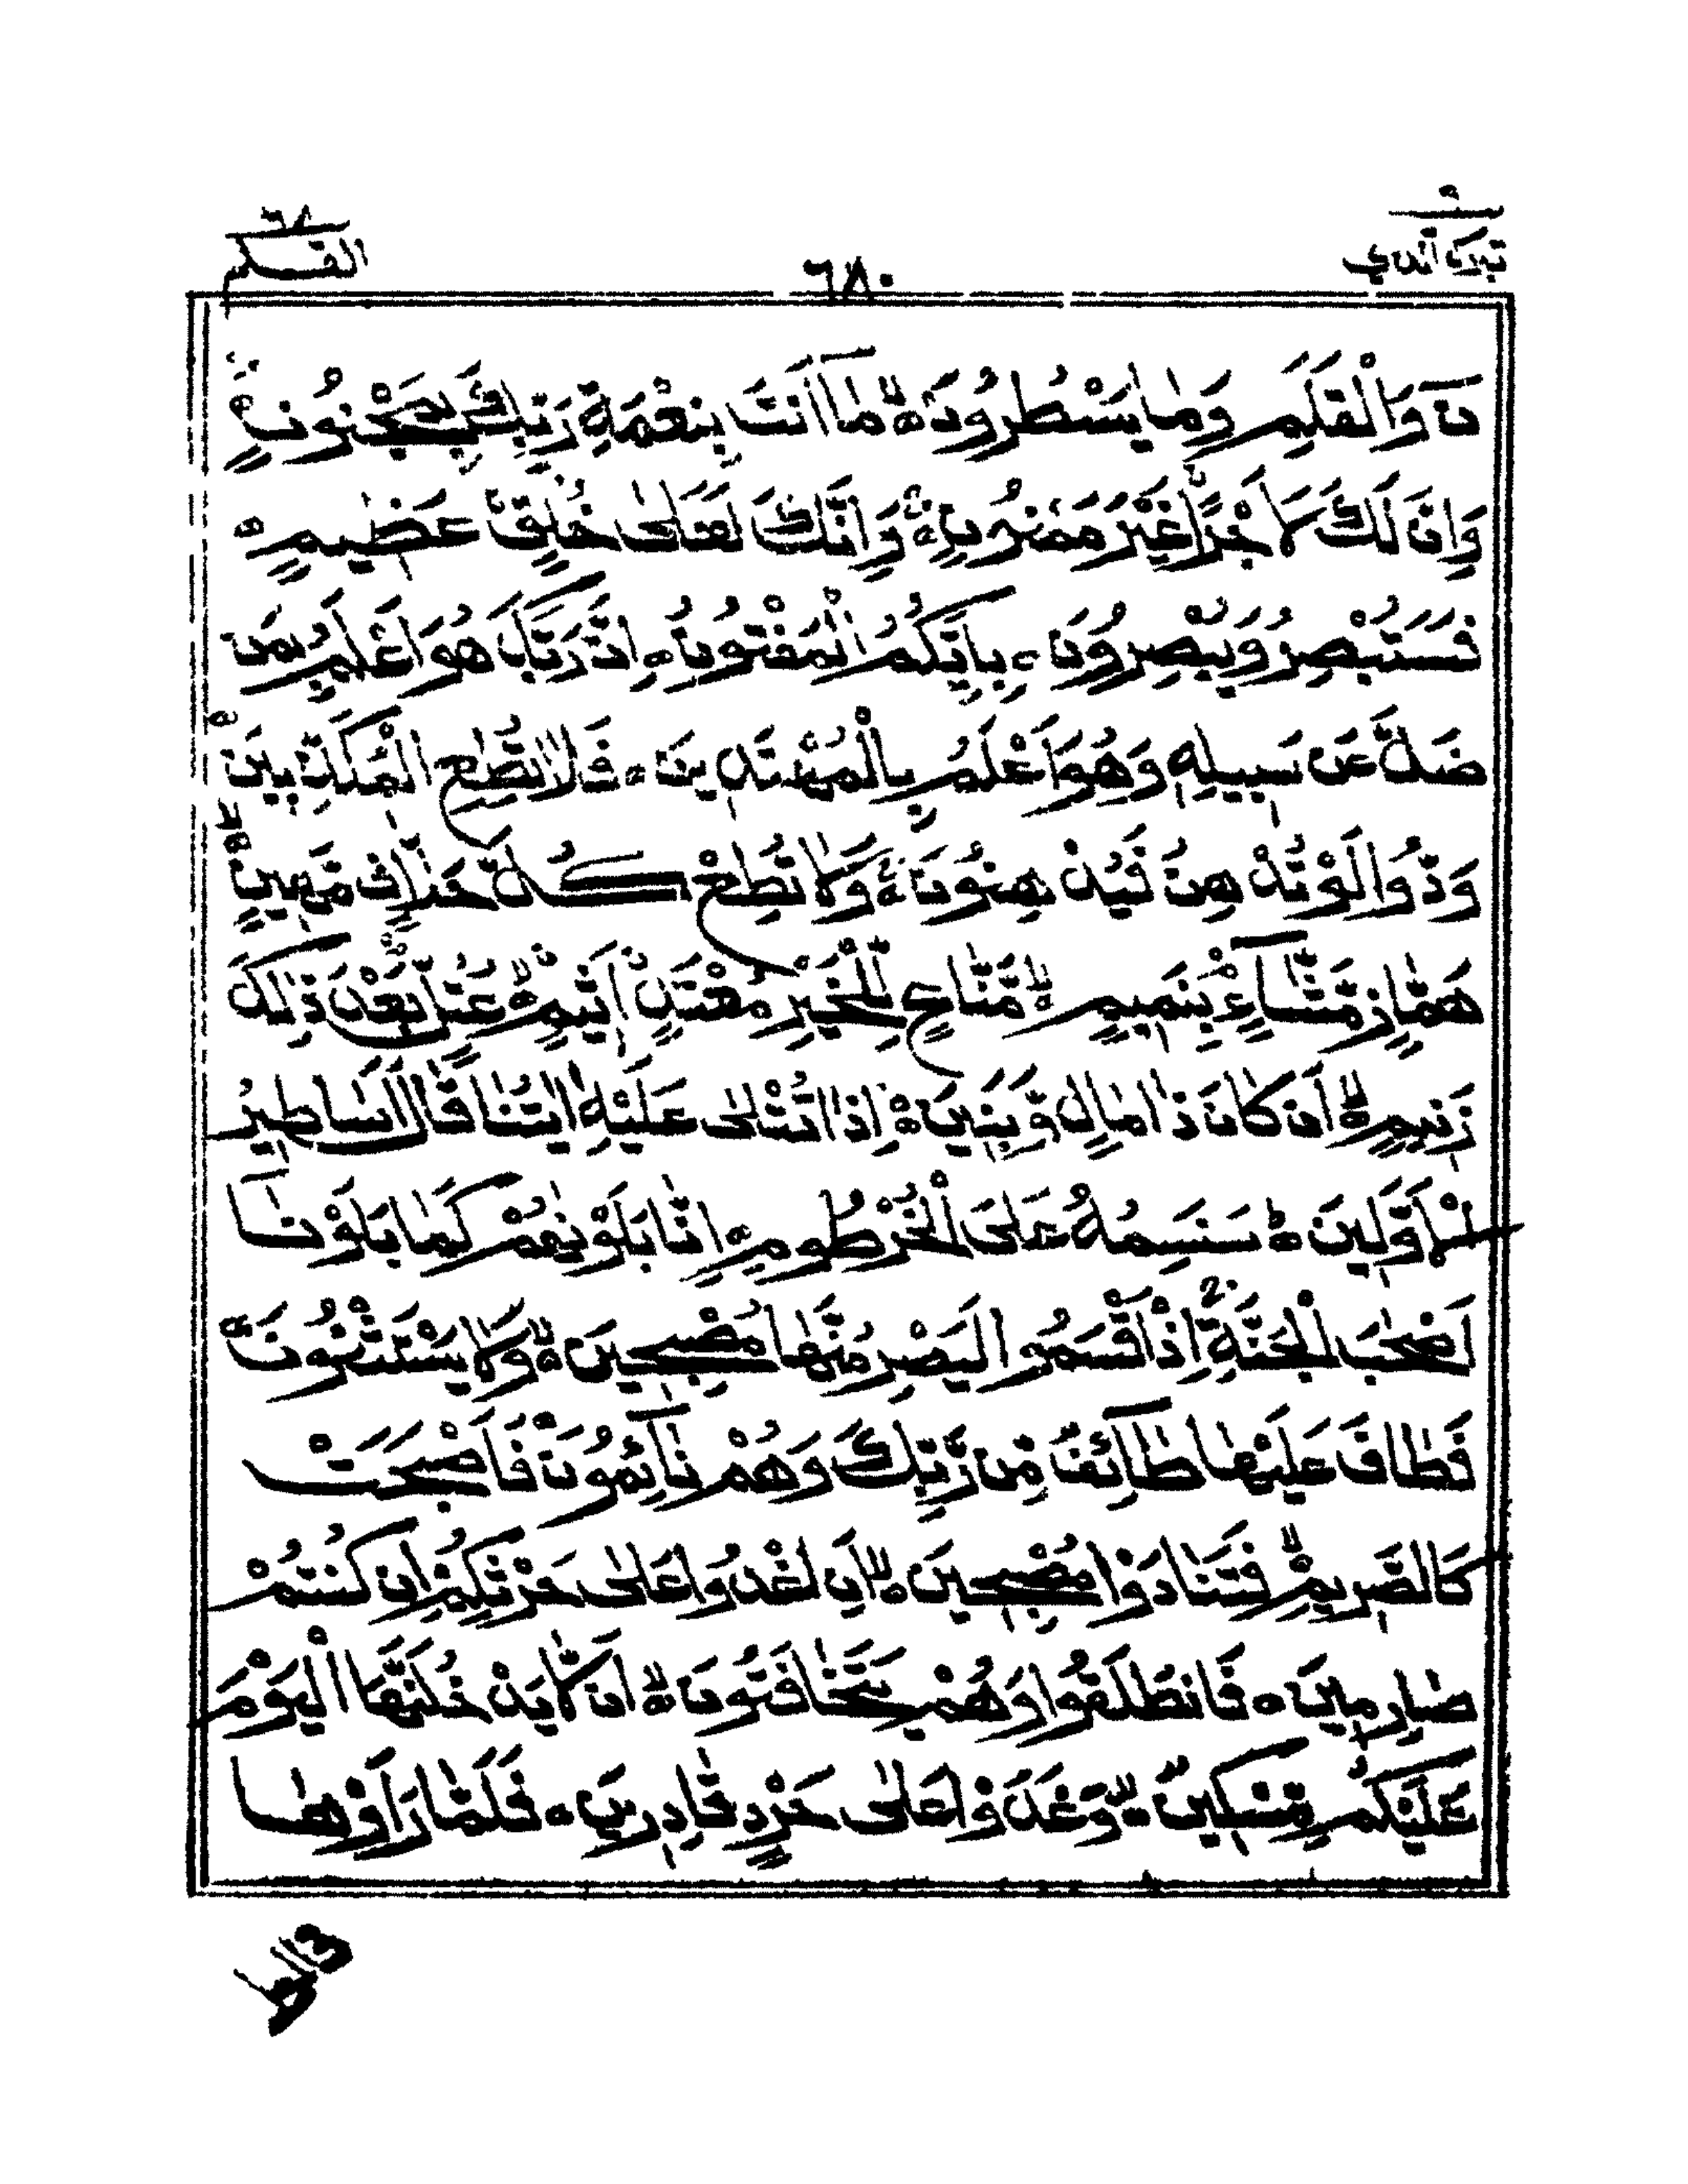 تبرك الذي
٦٨٠
٦٨
القلم
نٓ وَالْقَلَمِ وَمَا يَسْطُرُوْنَ ۙ مَآ اَنْتَ بِنِعْمَةِ رَبِّكَ بِمَجْنُوْنٍ ۚ
وَاِنَّ لَكَ لَاَجْرًا غَيْرَ مَمْنُوْنٍ ۚ وَاِنَّكَ لَعَلٰى خُلُقٍ عَظِيْمٍ ۝
فَسَتُبْصِرُ وَيُبْصِرُوْنَ ۙ بِاَيِّكُمُ الْمَفْتُوْنُ ۝ اِنَّ رَبَّكَ هُوَ اَعْلَمُ بِمَنْ
ضَلَّ عَنْ سَبِيْلِهٖ وَهُوَ اَعْلَمُ بِالْمُهْتَدِيْنَ ۝ فَلَا تُطِعِ الْمُكَذِّبِيْنَ ۝
وَدُّوْا لَوْ تُدْهِنُ فَيُدْهِنُوْنَ ۝ وَلَا تُطِعْ كُلَّ حَلَّافٍ مَّهِيْنٍ ۙ
هَمَّازٍ مَّشَّآءٍ بِنَمِيْمٍ ۙ مَّنَّاعٍ لِّلْخَيْرِ مُعْتَدٍ اَثِيْمٍ ۙ عُتُلٍّ بَعْدَ ذٰلِكَ
زَنِيْمٍ ۙ اَنْ كَانَ ذَا مَالٍ وَّبَنِيْنَ ۝ اِذَا تُتْلٰى عَلَيْهِ اٰيٰتُنَا قَالَ اَسَاطِيْرُ
الْاَوَّلِيْنَ ۝ سَنَسِمُهٗ عَلَى الْخُرْطُوْمِ ۝ اِنَّا بَلَوْنٰهُمْ كَمَا بَلَوْنَآ
اَصْحٰبَ الْجَنَّةِ ۚ اِذْ اَقْسَمُوْا لَيَصْرِمُنَّهَا مُصْبِحِيْنَ ۙ وَلَا يَسْتَثْنُوْنَ ۝
فَطَافَ عَلَيْهَا طَآئِفٌ مِّنْ رَّبِّكَ وَهُمْ نَآئِمُوْنَ ۝ فَاَصْبَحَتْ
كَالصَّرِيْمِ ۙ فَتَنَادَوْا مُصْبِحِيْنَ ۙ اَنِ اغْدُوْا عَلٰى حَرْثِكُمْ اِنْ كُنْتُمْ
صَارِمِيْنَ ۝ فَانْطَلَقُوْا وَهُمْ يَتَخَافَتُوْنَ ۙ اَنْ لَّا يَدْخُلَنَّهَا الْيَوْمَ
عَلَيْكُمْ مِّسْكِيْنٌ ۙ وَّغَدَوْا عَلٰى حَرْدٍ قَادِرِيْنَ ۝ فَلَمَّا رَاَوْهَا